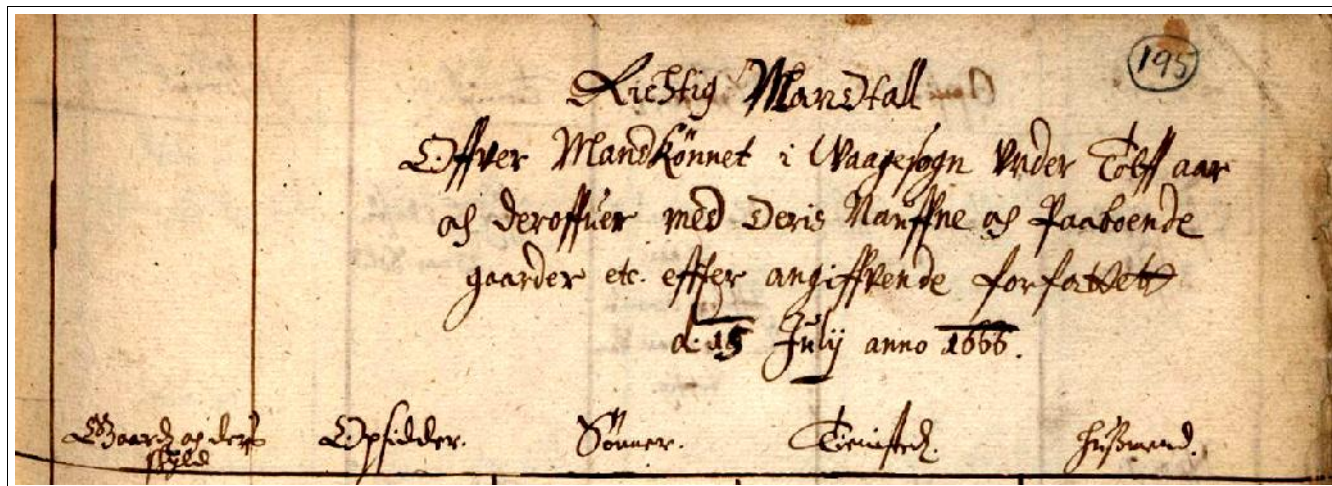 195
Richtig Mandtall
Offver Mandkønnet i Waagesogn Vnder Tolff aar
och deroffuer med Deris Nauffne och Paaboende
gaarder etc. effter angiffvende forfattett
d. 15 Julij anno 1666.
Gaard och ders Opsidder. Sønner. Tienisted. Hußmend.
skyld